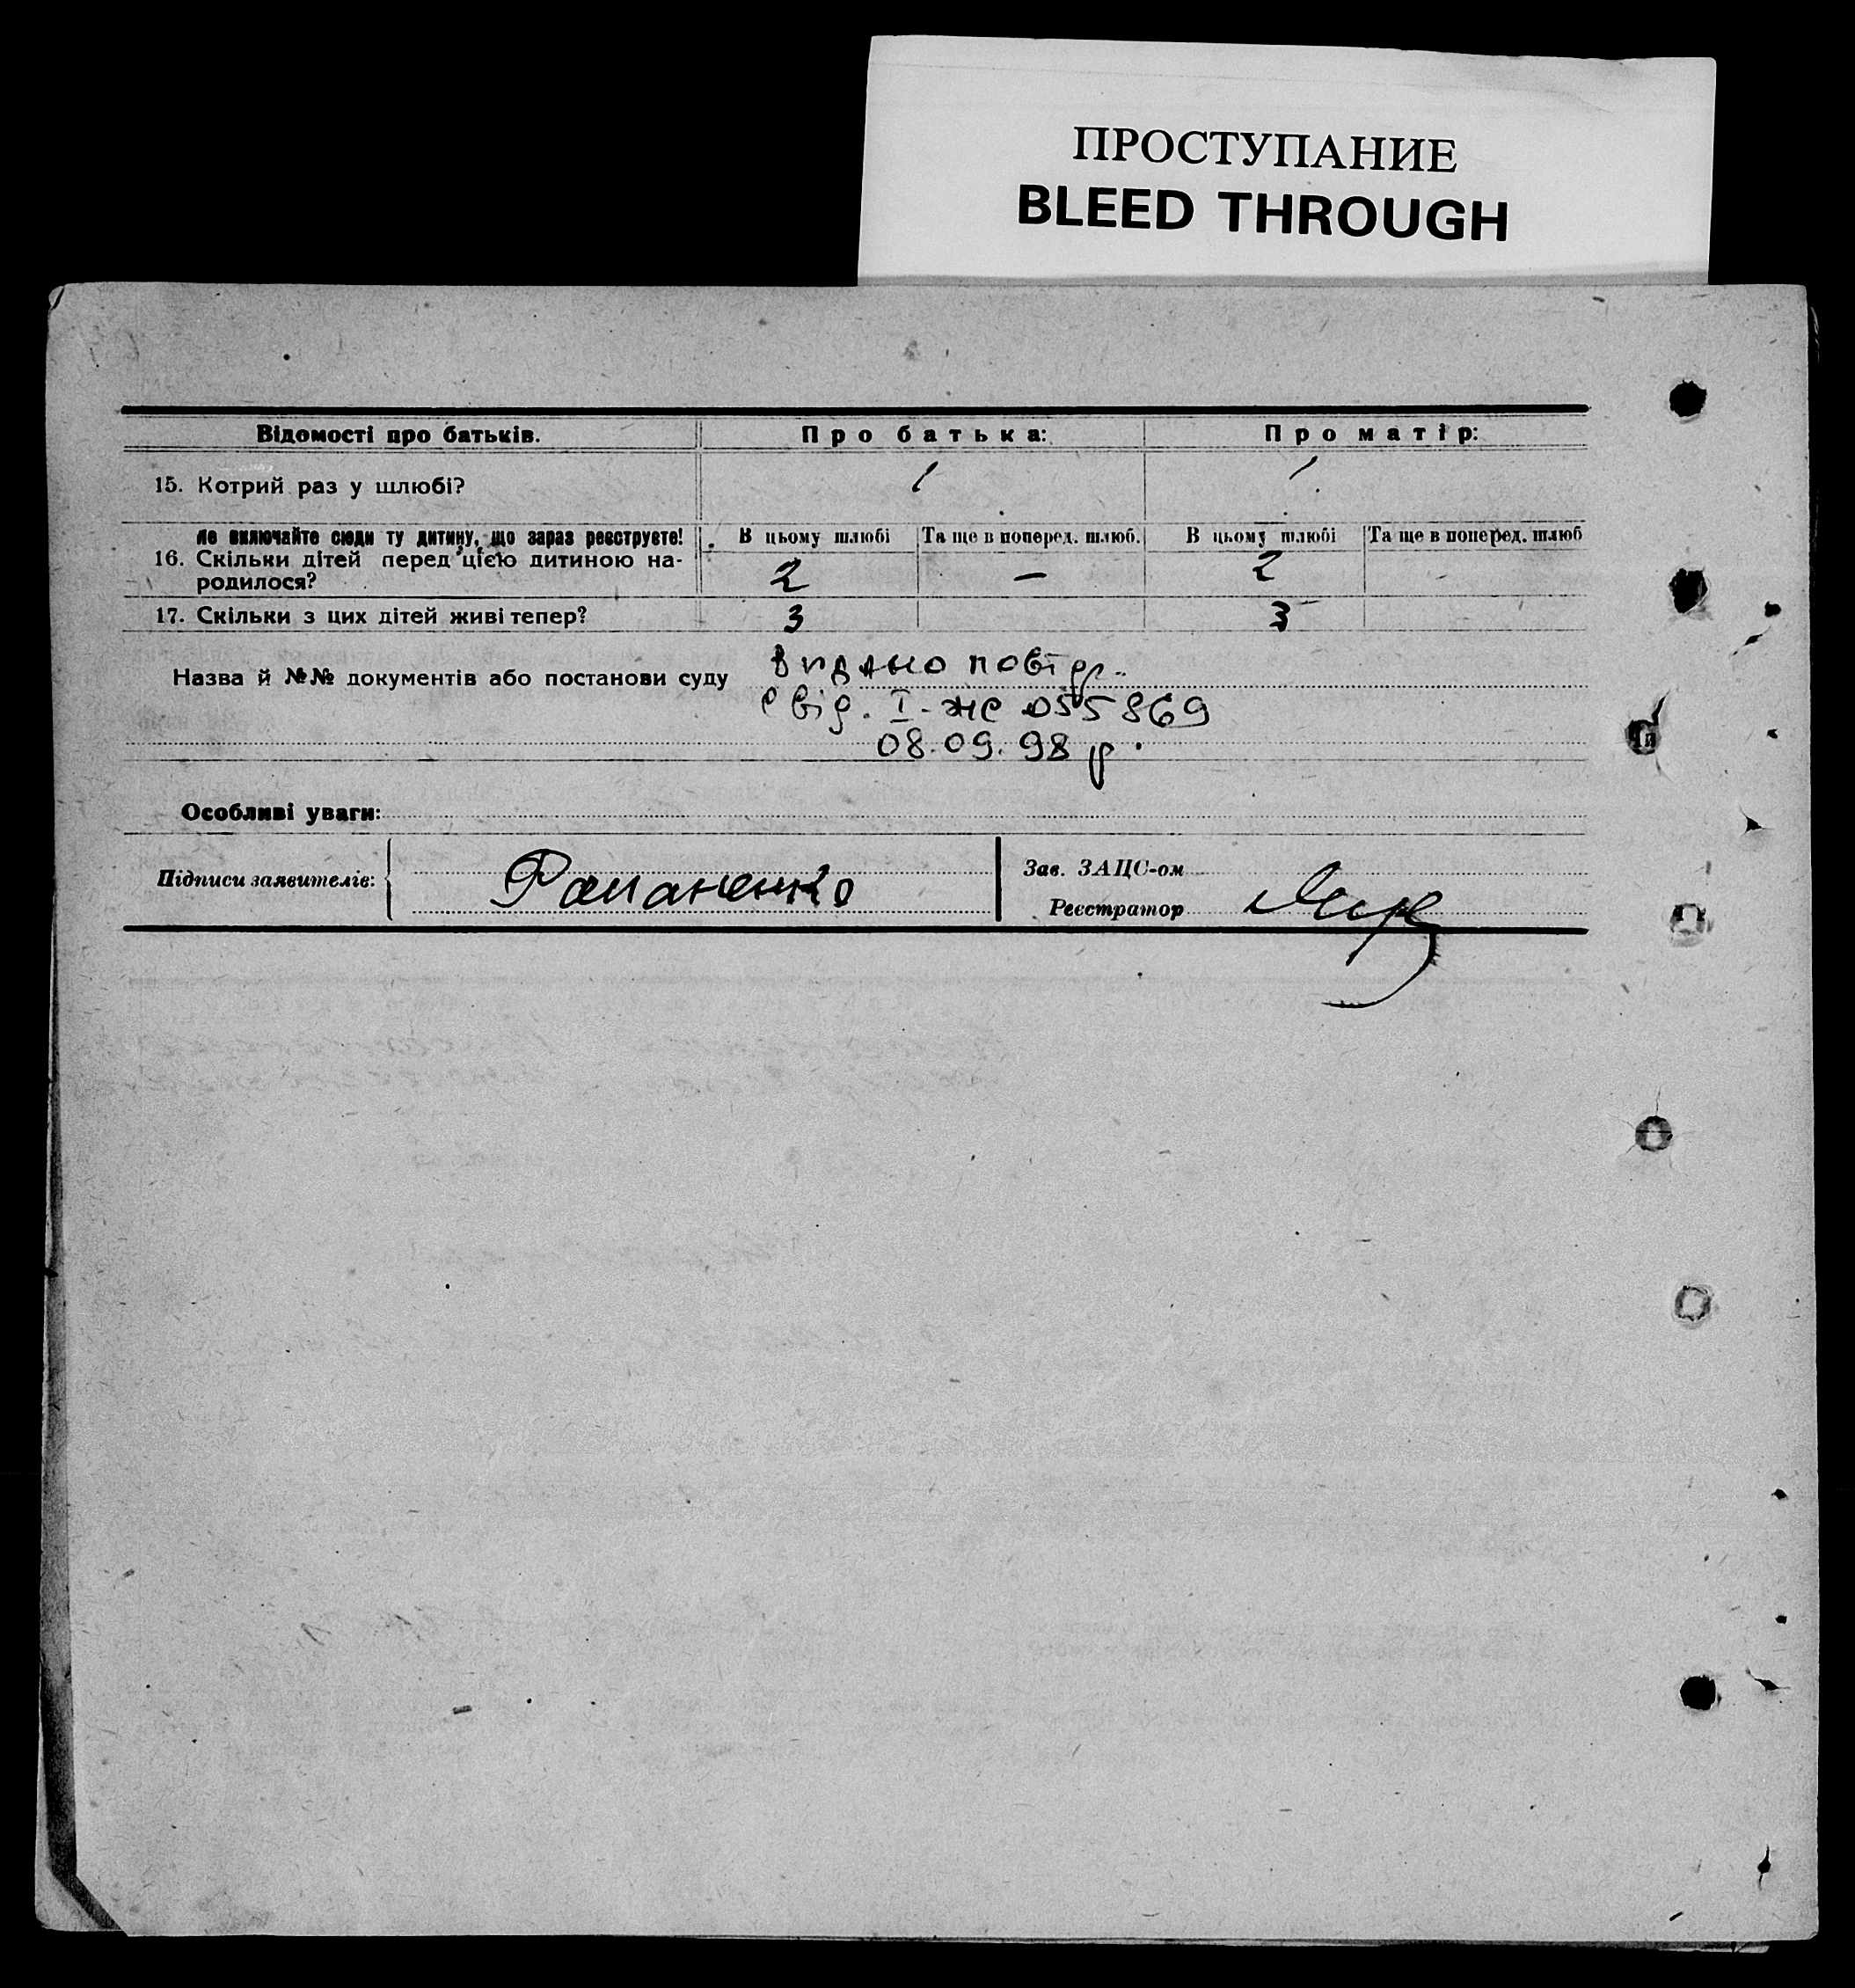 ПРОСТУПАНИЕ
BLEED THROUGH
Відомості про батьків. Про батька: Про матір:
15. Котрий раз у шлюбі? 1 1
Не включайте сюди ту дитину, що зараз реєструєте! В цьому шлюбі Та ще в поперед. шлюб. В цьому шлюбі Та ще в поперед. шлюб
16. Скільки дітей перед цією дитиною на-
родилося? 2 — 2
17. Скільки з цих дітей живі тепер? 3 3
Видано повідр.
Назва й №№ документів або постанови суду
Свід. I-ЖС 055869
08.09.98 р.
Особливі уваги:
Підписи заявителів: Романенко
Зав. ЗАЦС-ом
Реєстратор